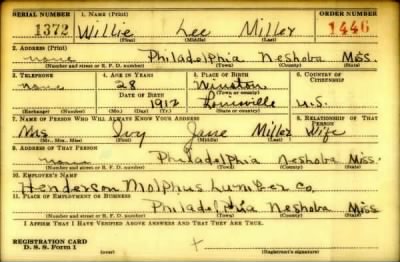 SERIAL NUMBER 1. NAME (Print) ORDER NUMBER
1372 Willie Lee Miller 1446
(First) (Middle) (Last)
2. ADDRESS (Print)
none Philadelphia Neshoba Miss.
(Number and street or R. F. D. number) (Town) (County) (State)
3. TELEPHONE 4. AGE IN YEARS 5. PLACE OF BIRTH 6. COUNTRY OF CITIZENSHIP
none 28 Winston
DATE OF BIRTH (Town or county)
1912 Louisville U.S.
(Exchange) (Number) (Mo.) (Day) (Yr.) (State or country)
7. NAME OF PERSON WHO WILL ALWAYS KNOW YOUR ADDRESS 8. RELATIONSHIP OF THAT PERSON
Mrs Ivy Jane Miller Wife
(Mr., Mrs., Miss) (First) (Middle) (Last)
9. ADDRESS OF THAT PERSON
none Philadelphia Neshoba Miss.
(Number and street or R. F. D. number) (Town) (County) (State)
10. EMPLOYER'S NAME
Henderson Molphus Lumber Co.
11. PLACE OF EMPLOYMENT OR BUSINESS
Philadelphia Neshoba Miss
(Number and street or R. F. D. number) (Town) (County) (State)
I AFFIRM THAT I HAVE VERIFIED ABOVE ANSWERS AND THAT THEY ARE TRUE.
REGISTRATION CARD
D. S. S. Form 1 (Registrant's signature)